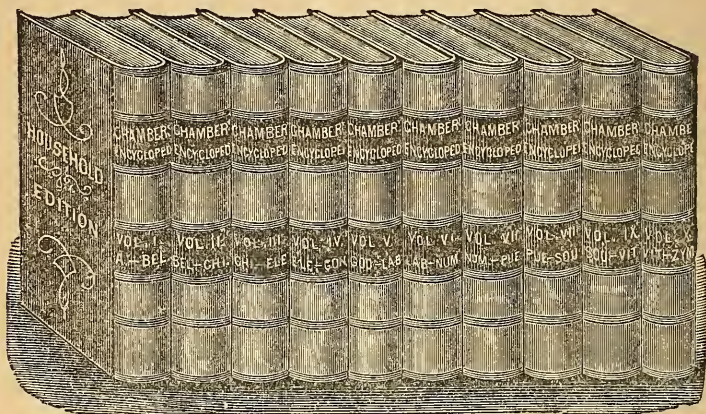 HOUSEHOLD
EDITION
CHAMBER'
ENCYCLOPED
VOL. I.
A.–BEL
CHAMBER'
ENCYCLOPED
VOL. II.
BEL–CHI.
CHAMBER'
ENCYCLOPED
VOL. III.
CHI.–ELE
CHAMBER'
ENCYCLOPED
VOL. IV.
ELE–GON
CHAMBER'
ENCYCLOPED
VOL V.
GOD–LAB
CHAMBER'
ENCYCLOPED
VOL VI.
LAB–NUM
CHAMBER'
ENCYCLOPED
VOL. VII
NUM.–PUE
CHAMBER'
ENCYCLOPED
VOL. VIII
PUE–SOU
CHAMBER'
ENCYCLOPED
VOL. IX
SOU–VIT
CHAMBE
ENCYCLOPE
VOL. X
VIT–ZYM